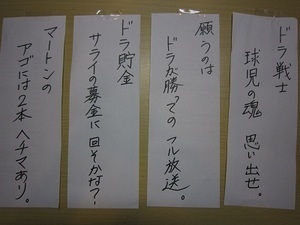 ドラ戦士
球児の魂 思い出せ。
願うのは
ドラが勝っての フル放送。
ドラ貯金
サライの募金に 回そかな?
マートンの
アゴには2本 ヘチマあり。